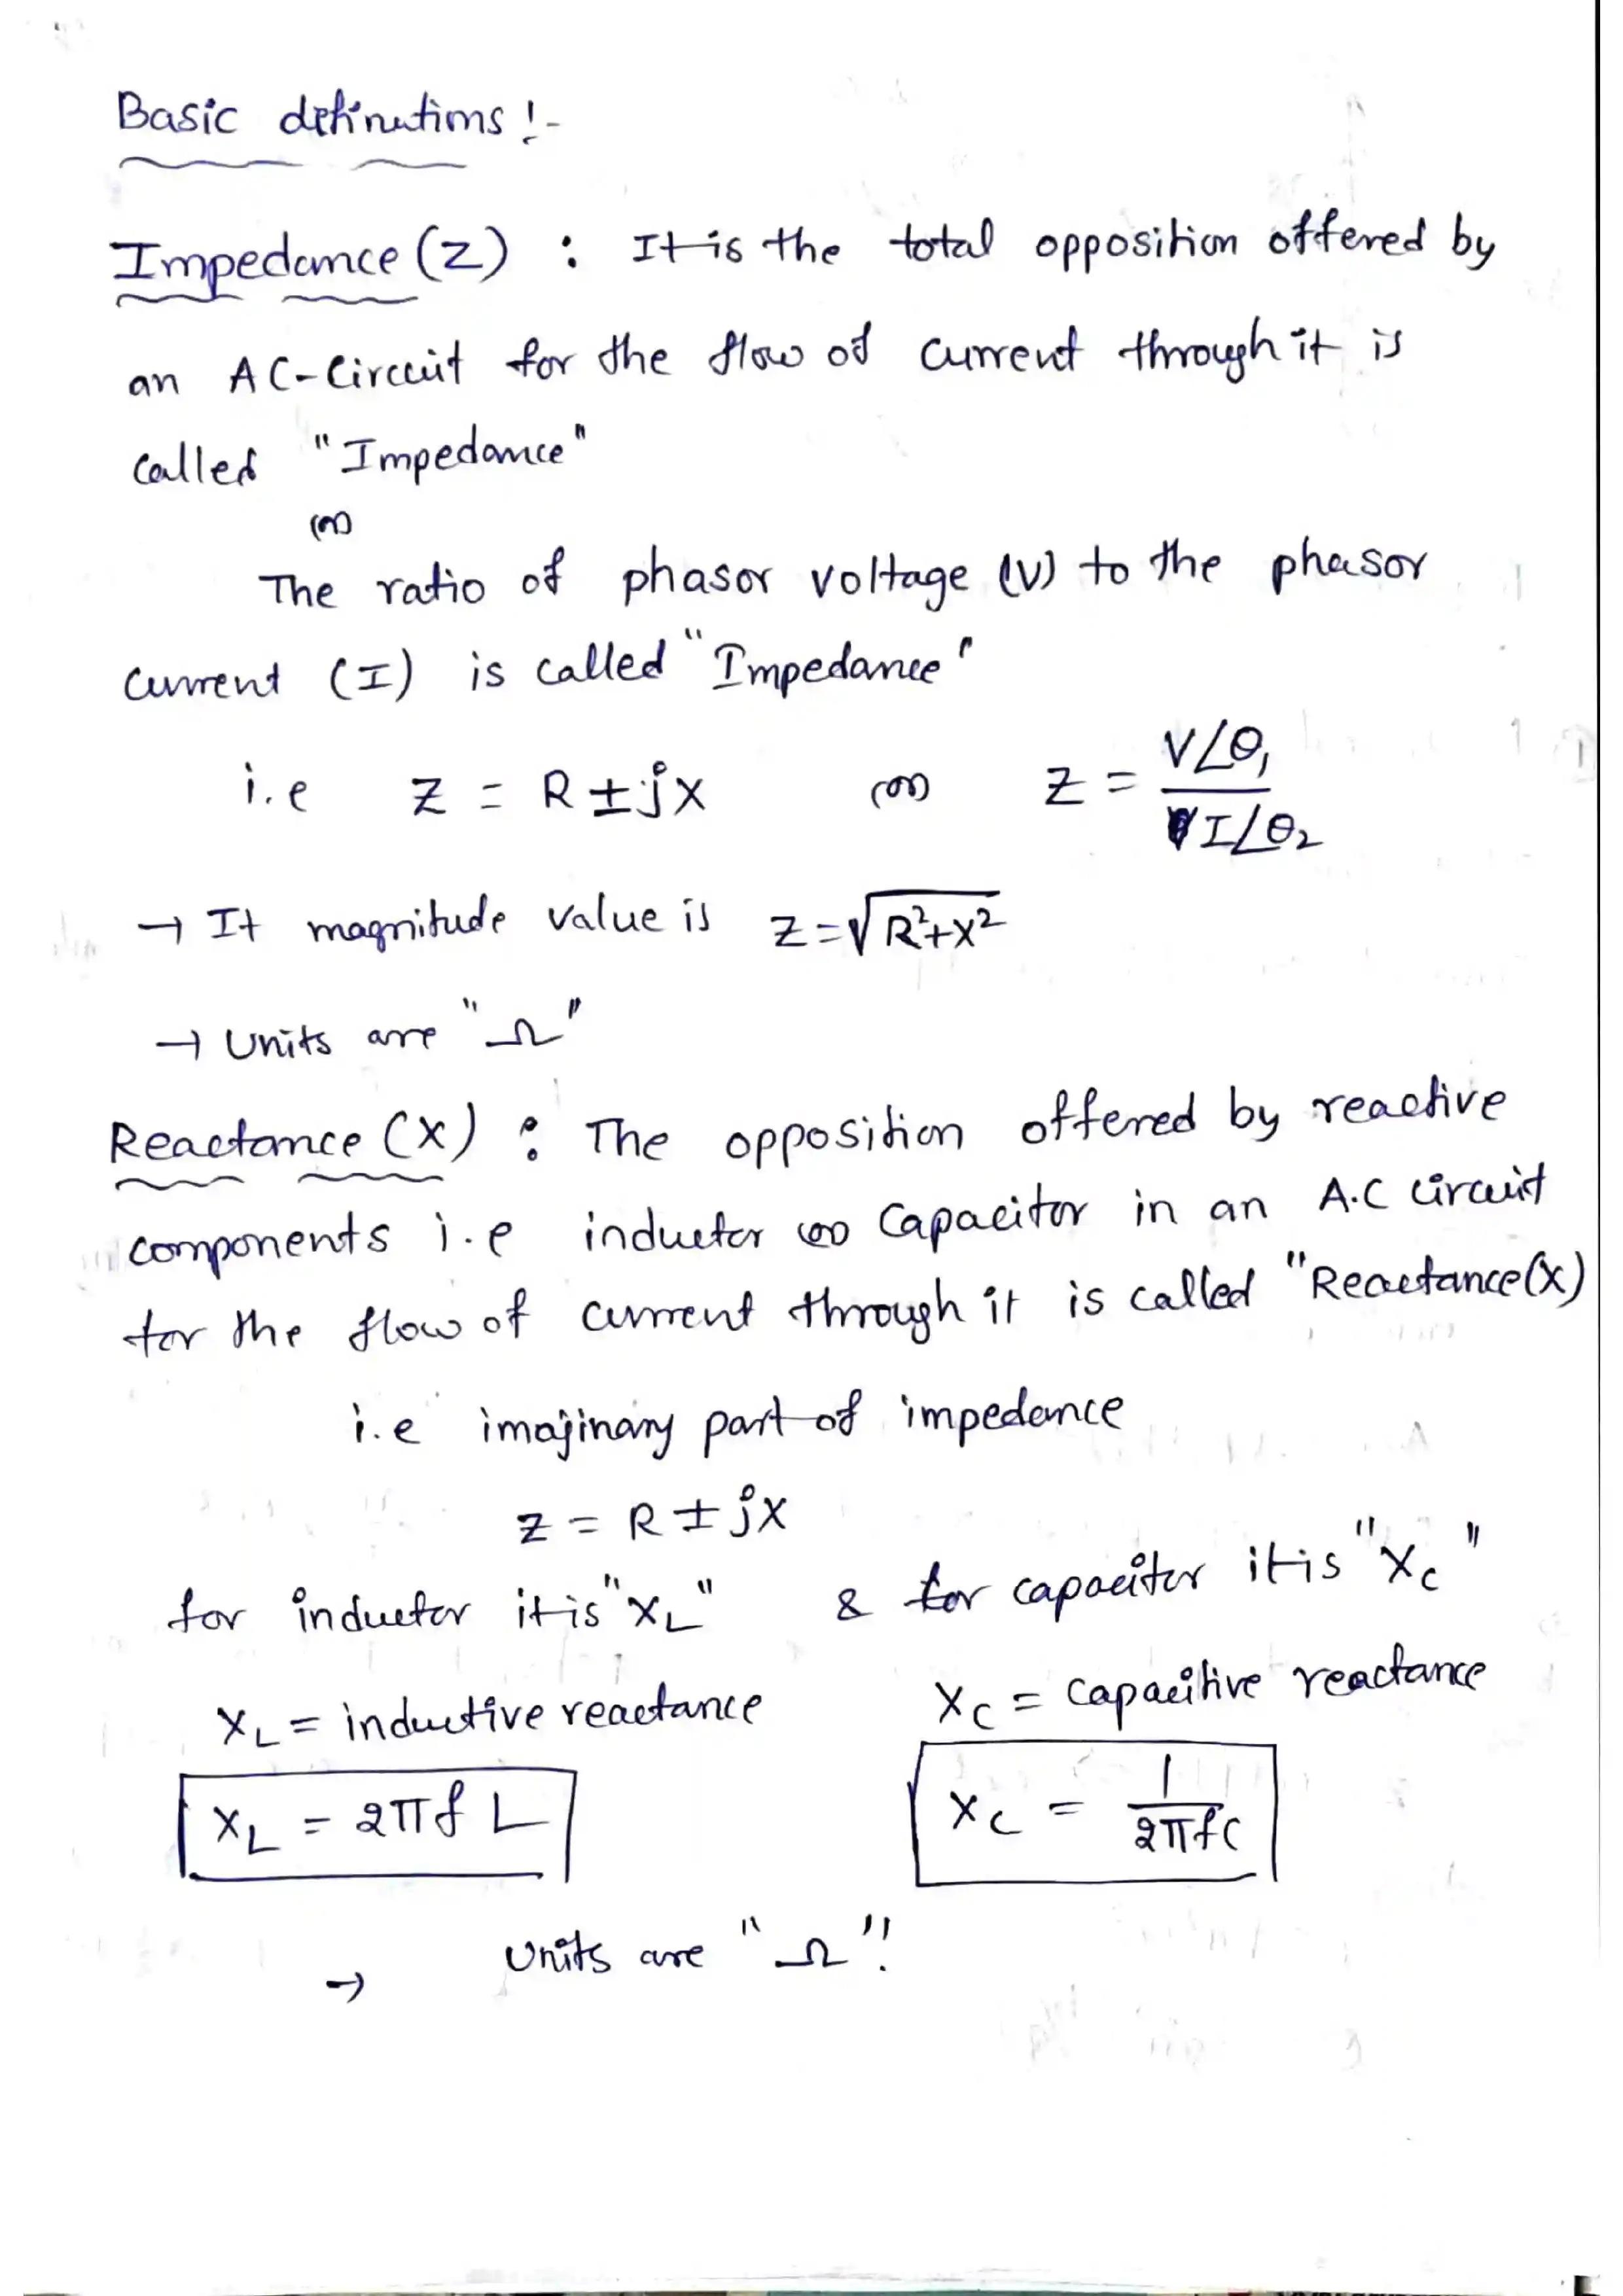 Basic definitions :-
Impedance (Z) : It is the total opposition offered by
an AC-Circuit for the flow of current through it is
called "Impedance"
(or)
The ratio of phasor voltage (V) to the phasor
current (I) is called "Impedance"
i.e Z = R ± jX (or) Z = V∠θ₁ / I∠θ₂
→ It magnitude value is Z = √(R²+X²)
→ Units are "Ω"
Reactance (X) : The opposition offered by reactive
components i.e inductor (or) Capacitor in an A.C circuit
for the flow of current through it is called "Reactance(X)
i.e imajinary part of impedance
Z = R ± jX
for inductor it is "X_L" & for capacitor it is "X_C"
X_L = inductive reactance X_C = capacitive reactance
X_L = 2πf L X_C = 1 / 2πfC
→ Units are "Ω".